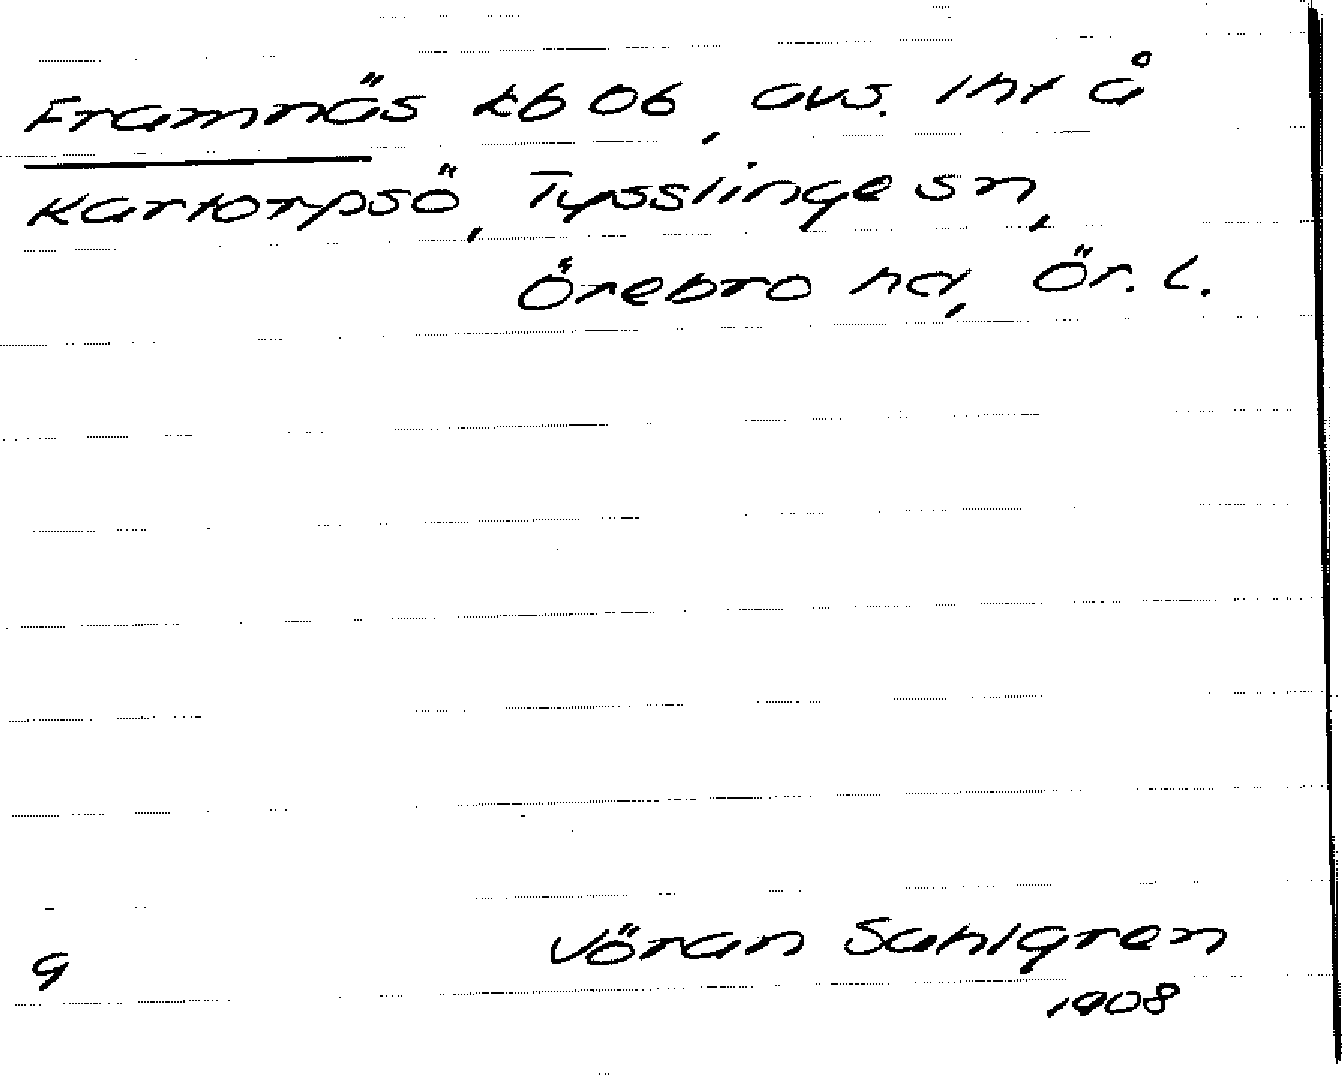 Framnäs kb 06, avs. lht å
Kartorpsö, Tysslinge sn,
Örebro hd, Ör. l.
Jöran Sahlgren
9
1908